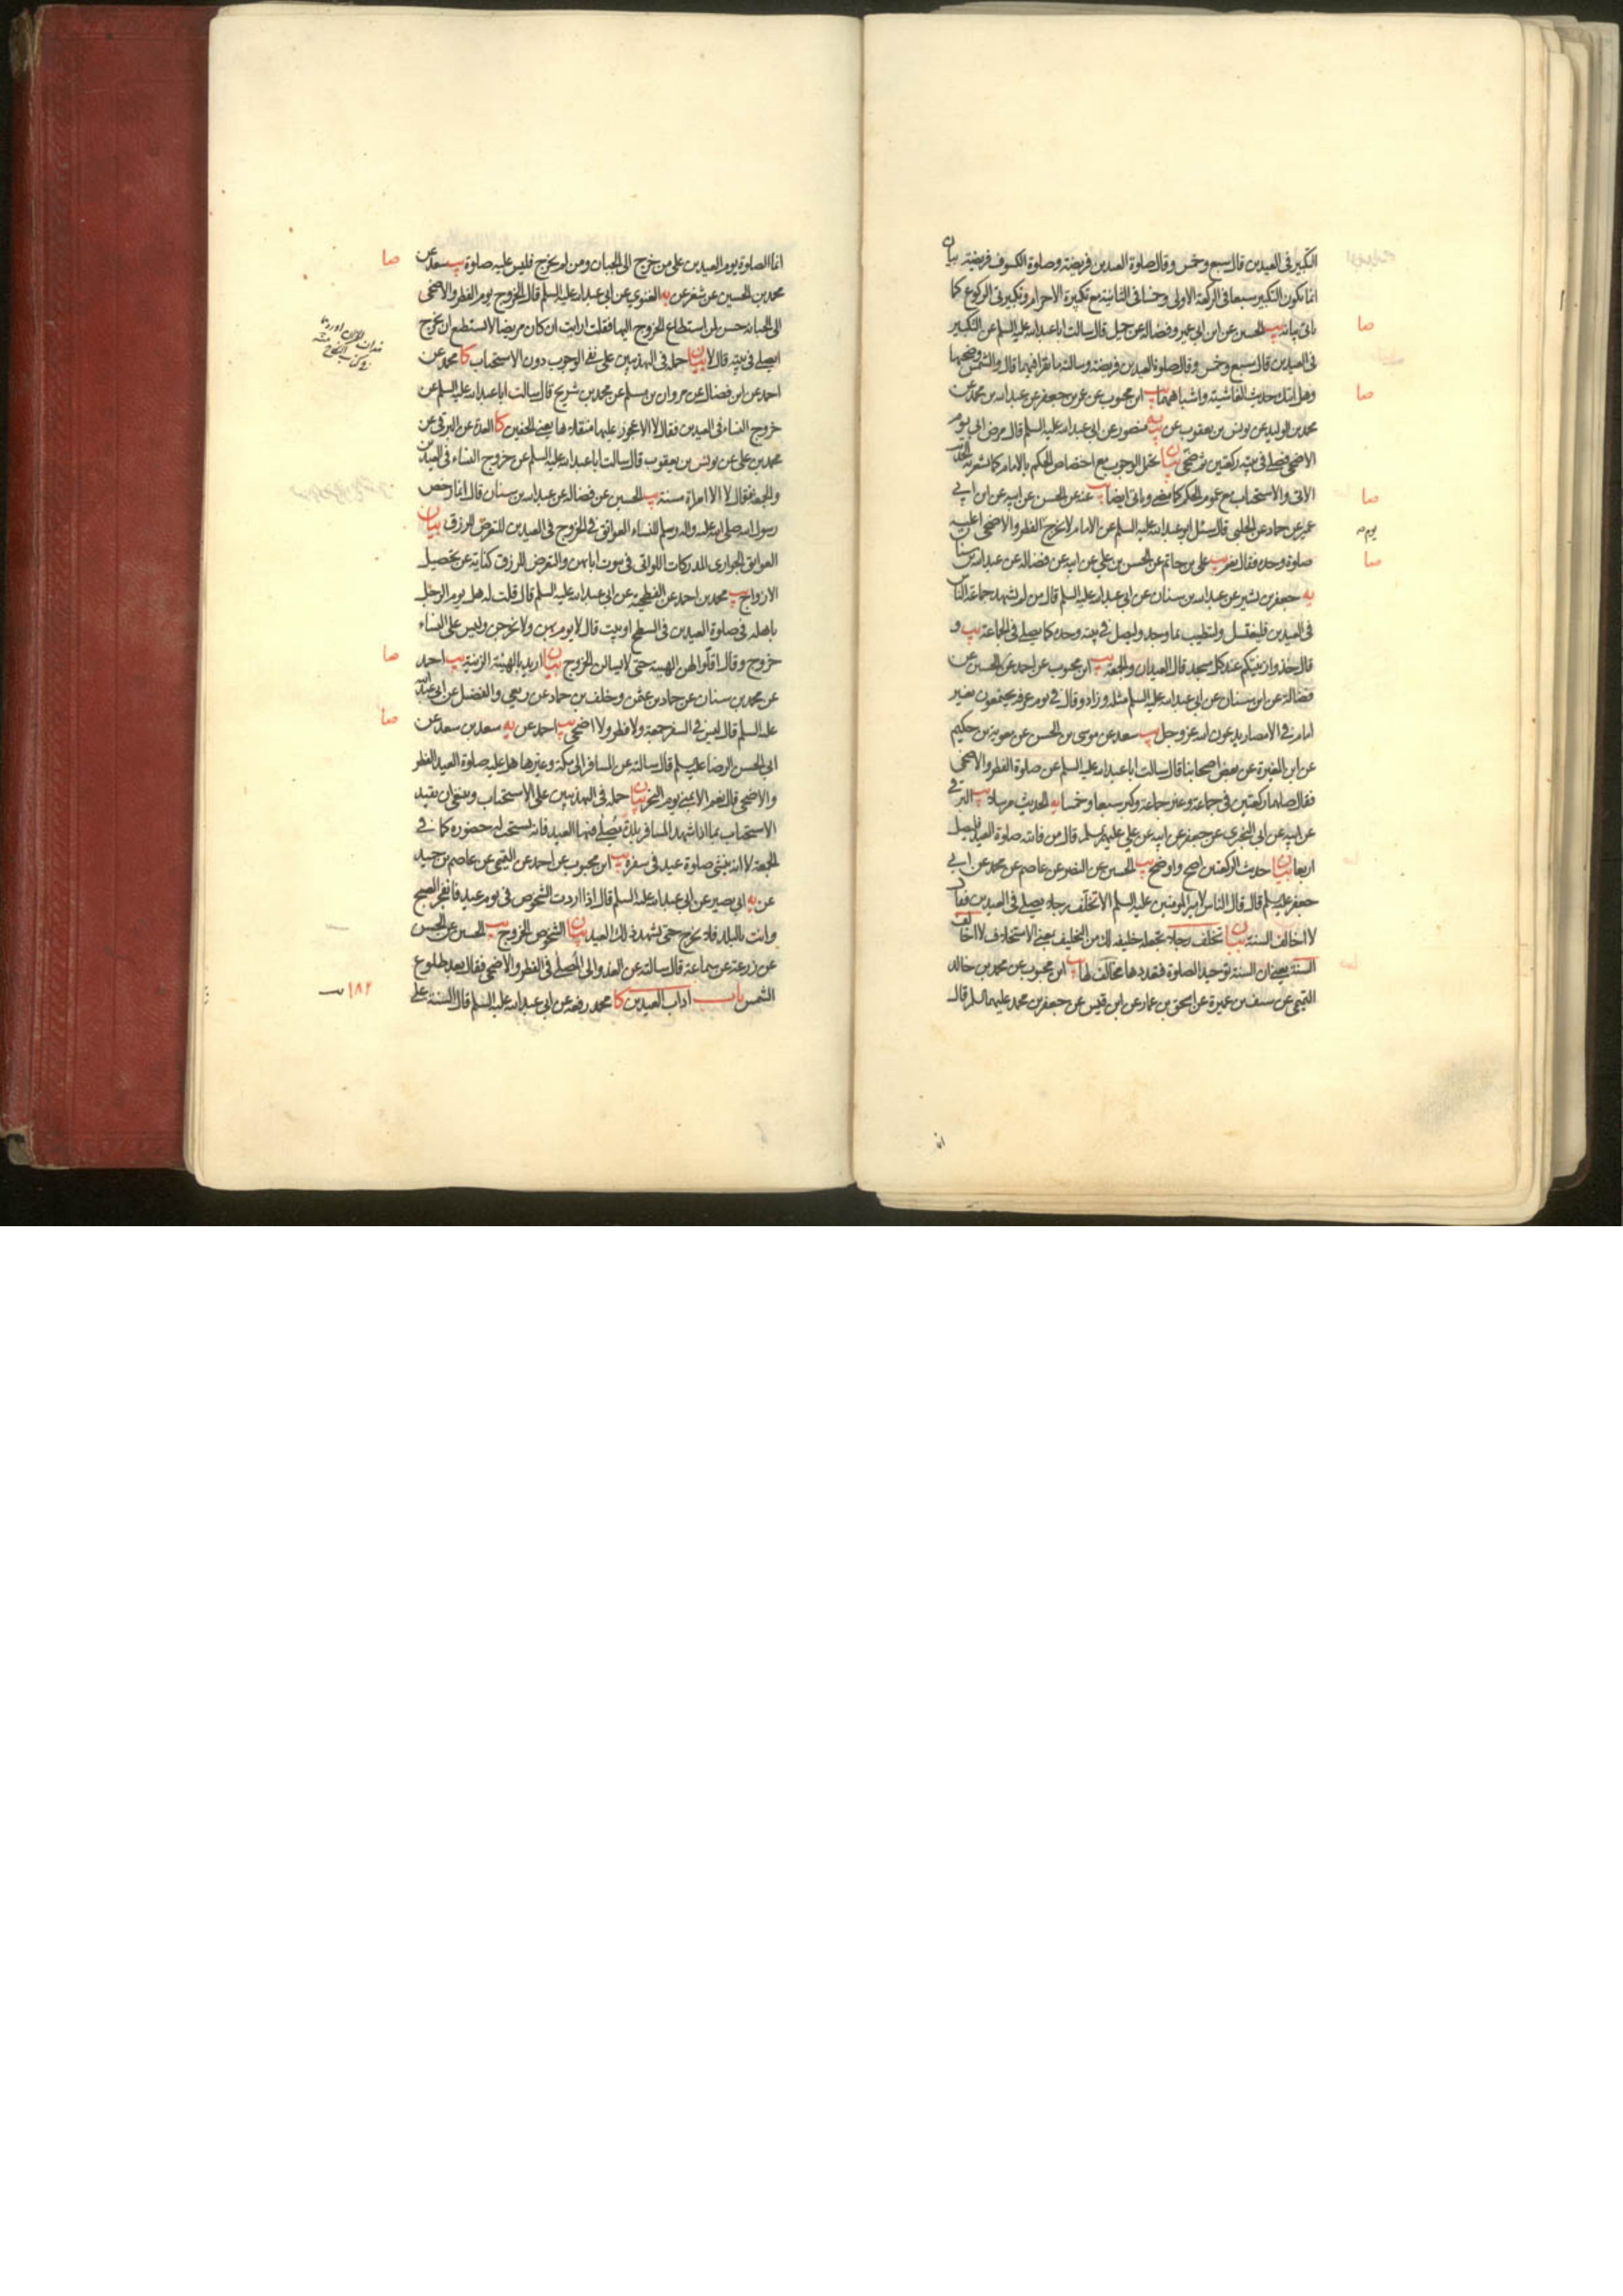 التكبير في العيدين قال سبع وخمس وقال صلوة العيدين فريضة وصلوة الكسوف فريضة بيان
انما يكون التكبير سبعا في الركعة الاولى وخمسا في الثانية مع تكبيرة الاحرام وتكبيرتي الركوع كما
ياتي بيانه يب الحسين عن ابن ابي عمير وفضالة عن جميل قال سالت ابا عبد الله عليه السلم عن التكبير
في العيدين قال سبع وخمس وقال صلوة العيدين فريضة وسالته ما يقرا فيهما قال والشمس وضحيها
وهل اتيك حديث الغاشية واشباههما يب ابن محبوب عن عمر بن جعفر عن عبد الله بن محمد عن
محمد بن الوليد عن يونس بن يعقوب عن يه منصور عن ابي عبد الله عليه السلم قال مرض ابي يوم
الاضحى فصلى في بيته ركعتين ثم ضحى بيان يحتمل الوجوب مع اختصاص الحكم بالامام كما يشعر به الحديث
الاتي والاستحباب مع عموم الحكم كما مضى وياتي ايضا يب عنه عن الحسن عن ابيه عن ابن ابي
عمير عن حماد عن الحلبي قال سئل ابو عبد الله عليه السلم عن الامام لا يخرج الفطر والاضحى اعليه
صلوة وحده فقال نعم يب علي بن حاتم عن الحسن بن علي عن ابيه عن فضالة عن عبد الله بن سنان
يه جعفر بن بشير عن عبد الله بن سنان عن ابي عبد الله عليه السلم قال من لم يشهد جماعة الناس
في العيدين فليغتسل وليتطيب بما وجد وليصل في بيته وحده كما يصلي في الجماعة يب و
قال خذوا زينتكم عند كل مسجد قال العيدان والجمعة يب ابن محبوب عن احمد عن الحسين عن
فضالة عن ابن سنان عن ابي عبد الله عليه السلم مثله وزاد وقال في يوم عرفة يجتمعون بغير
امام في الامصار يدعون الله عز وجل يب سعد عن موسى بن الحسن عن معوية بن حكيم
عن ابن المغيرة عن بعض اصحابنا قال سالت ابا عبد الله عليه السلم عن صلوة الفطر والاضحى
فقال صلهما ركعتين في جماعة وغير جماعة وكبر سبعا وخمسا يه الحديث مرسلا يب البرقي
عن ابيه عن ابي البختري عن جعفر عن ابيه عن علي عليهم السلم قال من فاتته صلوة العيد فليصل
اربعا بيان حديث الركعتين اصح واوضح يب الحسين عن النضر عن عاصم عن محمد عن ابي
جعفر عليه السلم قال قال الناس لامير المومنين عليه السلم الا تخلف رجلا يصلي في العيدين فقال
لا اخالف السنة بيان تخلف رجلا تجعله خليفة لك من التخليف بمعنى الاستخلاف لا اخالف
السنة يعني ان السنة توحيد الصلوة فتعددها مخالف لها يب ابن محبوب عن محمد بن خالد
التميمي عن سيف بن عميرة عن اسحق بن عمار عن ابن قيس عن جعفر بن محمد عليهما السلم قال
صا
صا
صا
صا
انما
انما الصلوة يوم العيدين على من خرج الى الجبان ومن لم يخرج فليس عليه صلوة يب سعد عن
محمد بن الحسين عن شعر عن يه الغنوي عن ابي عبد الله عليه السلم قال الخروج يوم الفطر والاضحى
الى الجبانة حسن لمن استطاع الخروج اليها فقلت ارايت ان كان مريضا لا يستطيع ان يخرج
ايصلي في بيته قال لا بيان حمله في التهذيبين على نفي الوجوب دون الاستحباب كا محمد عن
احمد عن ابن فضال عن مروان بن مسلم عن محمد بن شريح قال سالت ابا عبد الله عليه السلم عن
خروج النساء في العيدين فقال لا الا عجوز عليها منقلاها يعني الخفين كا العدة عن البرقي عن
محمد بن علي عن يونس بن يعقوب قال سالت ابا عبد الله عليه السلم عن خروج النساء في العيدين
والجمعة فقال لا الا امراة مسنة يب الحسين عن فضالة عن عبد الله بن سنان قال انما رخص
رسول الله صلى الله عليه واله وسلم للنساء العواتق في الخروج في العيدين للتعرض للرزق بيان
العواتق الجواري المدركات اللواتي في بيوت ابائهن والتعرض للرزق كناية عن تحصيل
الازواج يب محمد بن احمد عن الفطحية عن ابي عبد الله عليه السلم قال قلت له هل يوم الرجل
باهله في صلوة العيدين في السطح او بيت قال لا يوم بهن ولا يخرجن وليس على النساء
خروج وقال اقلوا لهن الهيئة حتى لا يسالن الخروج بيان اريد بالهيئة الزينة يب احمد
عن محمد بن سنان عن حماد بن عثمن وخلف بن حماد عن ربعي والفضل عن ابي عبد الله
عليه السلم قال ليس في السفر جمعة ولا فطر ولا اضحى يب احمد عن يه سعد بن سعد عن
ابي الحسن الرضا عليه السلم قال سالته عن المسافر الى مكة وغيرها هل عليه صلوة العيد الفطر
والاضحى قال نعم الا بمنى يوم النحر بيان حمله في التهذيبين على الاستحباب وينبغي ان يقيد
الاستحباب بما اذا شهد المسافر بلدة يصلى فيها العيد فانه يستحب له حضوره كما في
الجمعة لا انه ينشئ صلوة عيد في سفره يب ابن محبوب عن احمد عن التميمي عن عاصم بن حميد
عن يه ابي بصير عن ابي عبد الله عليه السلم قال اذا اردت الشخوص في يوم عيد فانفجر الصبح
وانت بالبلد فلا تخرج حتى تشهد ذلك العيد بيان الشخوص الخروج يب الحسين عن الحسن
عن زرعة عن سماعة قال سالته عن الغدو الى المصلى في الفطر والاضحى فقال بعد طلوع
الشمس باب اداب العيدين كا محمد رفعه عن ابي عبد الله عليه السلم قال السنة على
صا
صا
صا
١٨٢